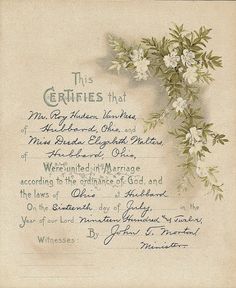 This
CERTIFIES that
Mr. Roy Hudson Van Ness
of Hubbard, Ohio, and
Miss Desda Elizabeth Walters,
of Hubbard, Ohio,
Were united in Marriage
according to the ordinance of God, and
the laws of Ohio at Hubbard
On the Sixteenth day of July, in the
Year of our Lord Nineteen Hundred & Twelve,
By John T. Morton
Witnesses: Minister.